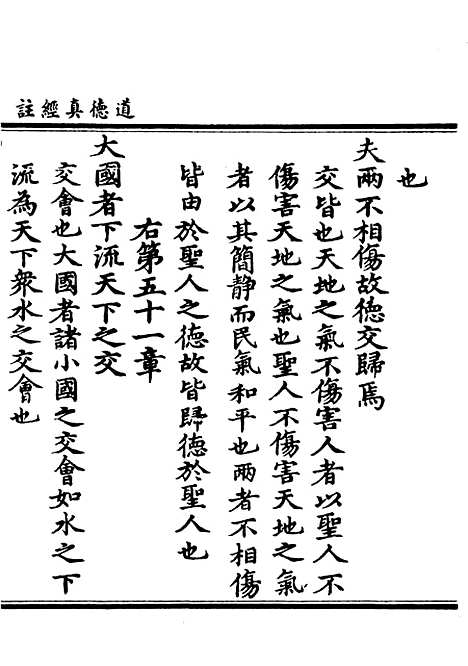 道德真經註
也
夫兩不相傷故德交歸焉
交皆也天地之氣不傷害人者以聖人不
傷害天地之氣也聖人不傷害天地之氣
者以其簡静而民氣和平也兩者不相傷
皆由於聖人之德故皆歸德於聖人也
右第五十一章
大國者下流天下之交
交會也大國者諸小國之交會如水之下
流為天下衆水之交會也